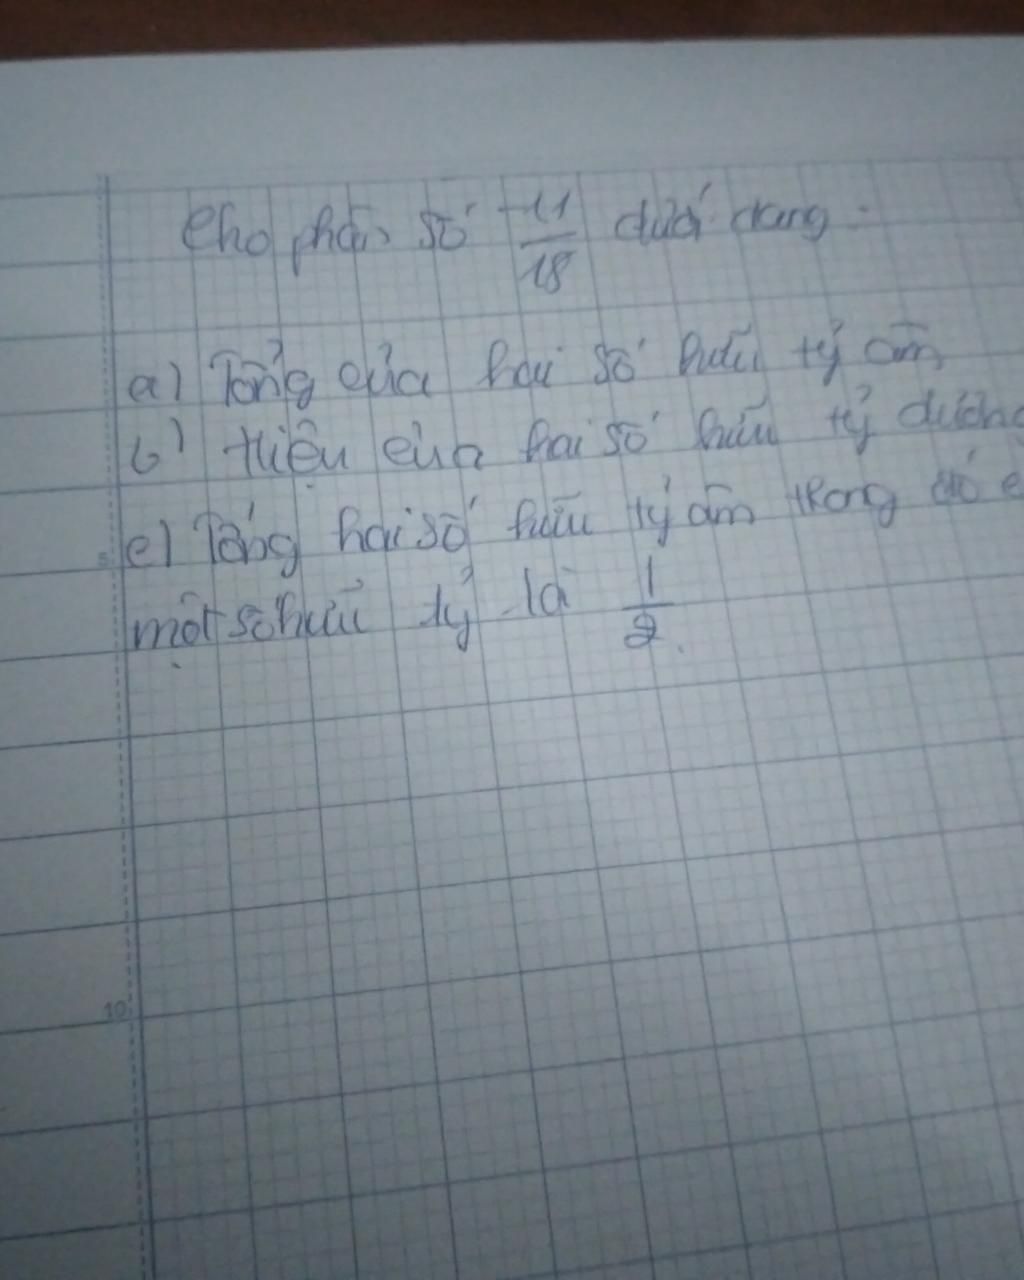 Cho phân số -11/18 dưới dạng:
a) Tổng của hai số hữu tỷ âm
b) Hiệu của hai số hữu tỷ dương
c) Tổng hai số hữu tỷ âm trong đó c
một số hữu tỷ là 1/2.
5
10